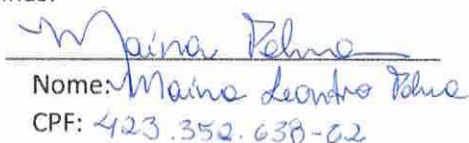 Maina Palma
Nome: Maina Leandro Palma
CPF: 423.352.638-62